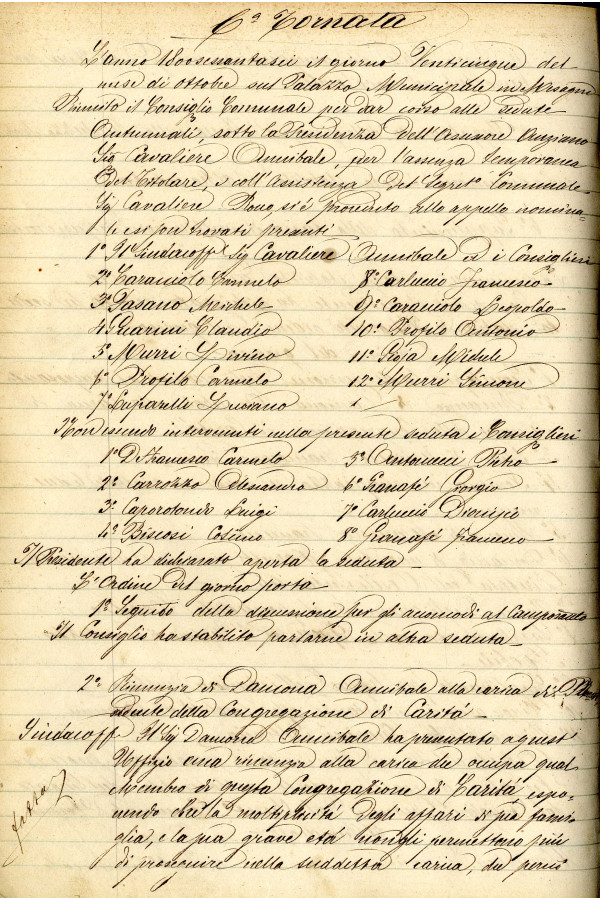 6ª Tornata
L'anno 1800sessantasei il giorno Venticinque del
mese di ottobre sul Palazzo Municipale in Mesagne
Riunito il Consiglio Comunale per dar corso alle sedute
Autunnali, sotto la Presidenza dell'Assessore Anziano
Sig Cavaliere Annibale, per l'assenza temporanea
del Titolare, e coll'Assistenza del Segretº Comunale
Sig Cavaliere si è proceduto allo appello nomina-
le e si son trovati presenti
1º Il Sindacoff Sig Cavaliere Annibale ed i Consiglieri
2º Caraciolo Carmelo 8º Carluccio Francesco
3º Fasano Michele 9º Caraciolo Leopoldo
4º Guarini Claudio 10º Profilo Antonio
5º Murri 11º Michele
6º Profilo Carmelo 12º Murri Simone
7º Luparelli
Non essendo intervenuti nella presente seduta i Consiglieri
1º D'Francesco Carmelo 5º Antonucci Pietro
2º Carrozzo Alessandro 6º Granafé Giorgio
3º Caporotondo Luigi 7º Carluccio
4º Biscosi Cosimo 8º Granafé
Il Presidente ha dichiarato aperta la seduta
L'Ordine del giorno porta
1º Seguito della discussione per gli accomodi al Camposanto
Il Consiglio ha stabilito parlarne in altra seduta
2º Rinunzia di Damona Annibale alla carica di
della Congregazione di Carità
Sindacoff Il Sig Damona Annibale ha presentato a quest'
Uffizio una rinunzia alla carica che occupa qual
Membro di questa Congregazione di Carità espo-
nendo che la moltiplicità degli affari di sua fami-
glia, e la sua grave età non gli permettono più
di proseguire nella suddetta carica, che perciò